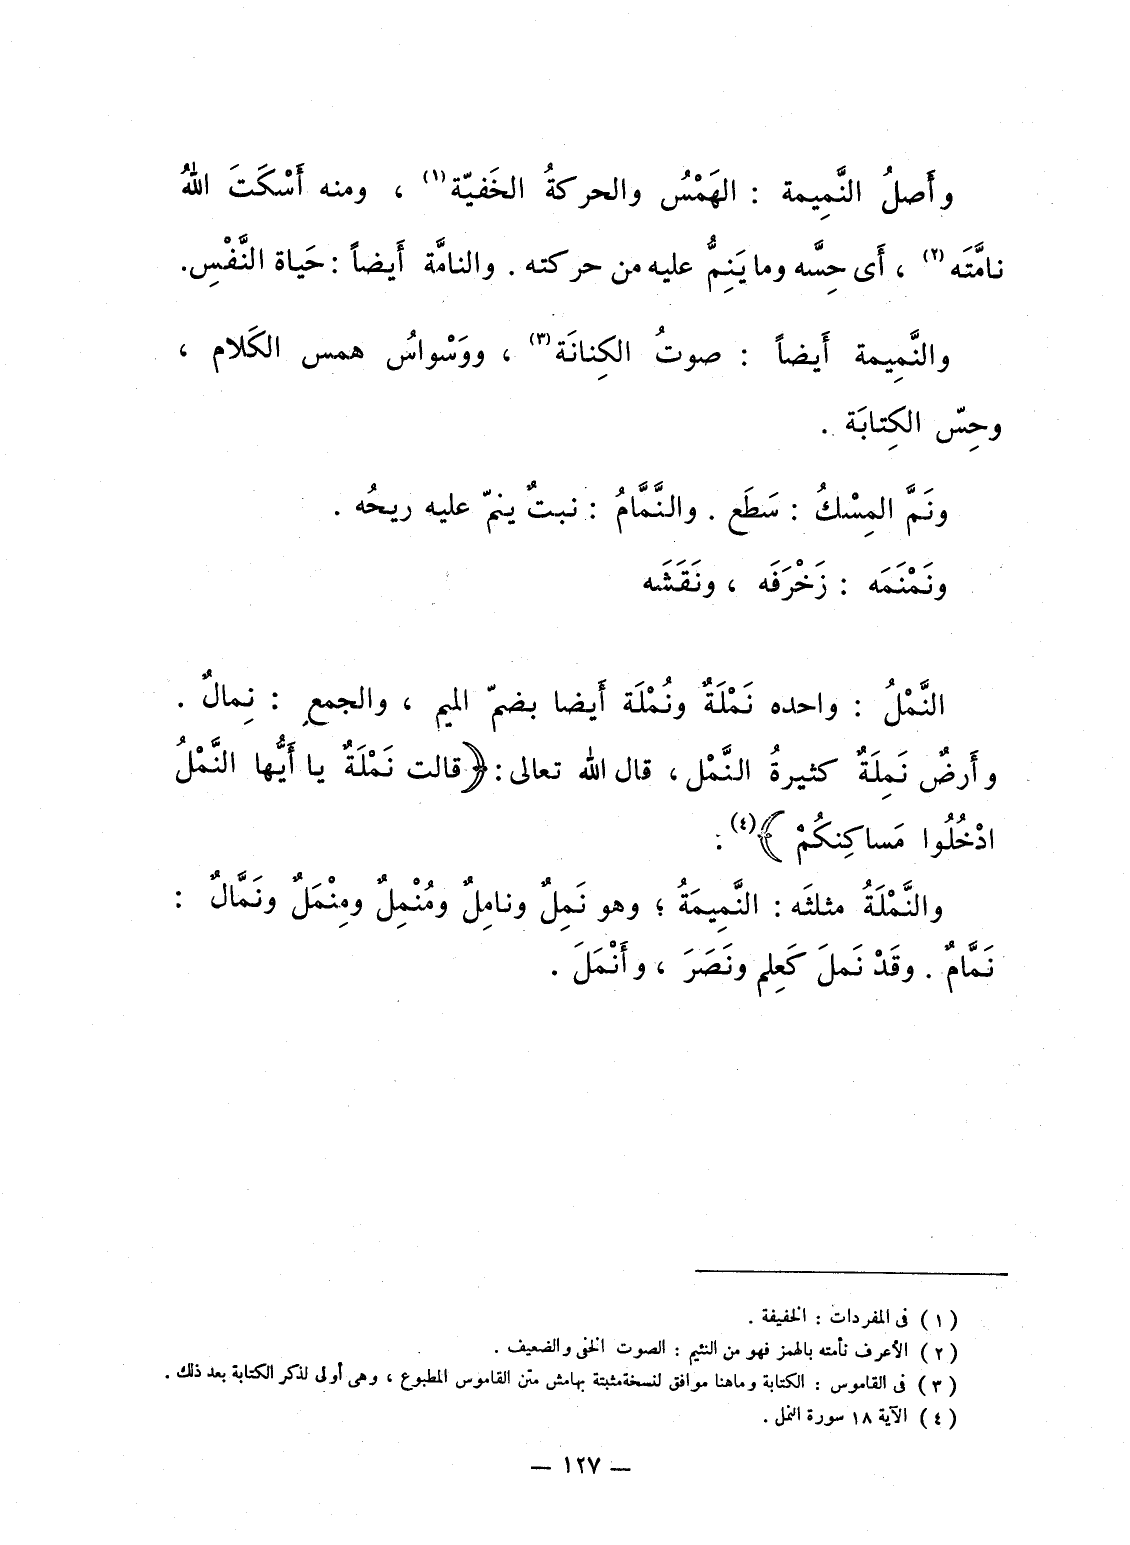 وأَصلُ النَّمِيمة : الهَمْسُ والحركةُ الخَفيّة(١) ، ومنه أَسْكَتَ اللهُ
نامَّتَه(٢) ، أَى حِسَّه وما يَنِمُّ عليه من حركته . والنامَّة أَيضاً : حَياة النَّفْسِ.
والنَّمِيمة أَيضاً : صوتُ الكِنانَة(٣) ، ووَسْواسُ همس الكَلام ،
وحِسّ الكِتابَة .
ونَمَّ المِسْكُ : سَطَع . والنَّمَّامُ : نبتٌ ينمّ عليه ريحُه .
ونَمْنَمَه : زَخْرَفَه ، ونَقَشَه
النَّمْلُ : واحده نَمْلَةٌ ونُمْلَة أَيضا بضمّ الميم ، والجمعِ : نِمالٌ .
وأَرضٌ نَمِلَةٌ كثيرةُ النَّمْل ، قال الله تعالى : ﴿قالت نَمْلَةٌ يا أَيُّها النَّمْلُ
ادْخُلُوا مَساكِنكُمْ ﴾(٤) .
والنَّمْلَةُ مثلثَه : النَّمِيمَةُ ؛ وهو نَمِلٌ ونامِلٌ ومُنْمِلٌ ومِنْمَلٌ ونَمَّالٌ :
نَمَّامٌ . وقَدْ نَملَ كَعِلم ونَصَرَ ، وأَنْمَلَ .
(١) فى المفردات : الخفيفة .
(٢) الأعرف نأمته بالهمز فهو من النئيم : الصوت الخفى والضعيف .
(٣) فى القاموس : الكتابة وماهنا موافق لنسخة مثبتة بهامش متن القاموس المطبوع ، وهى أولى لذكر الكتابة بعد ذلك .
(٤) الآية ١٨ سورة النمل .
— ١٢٧ —